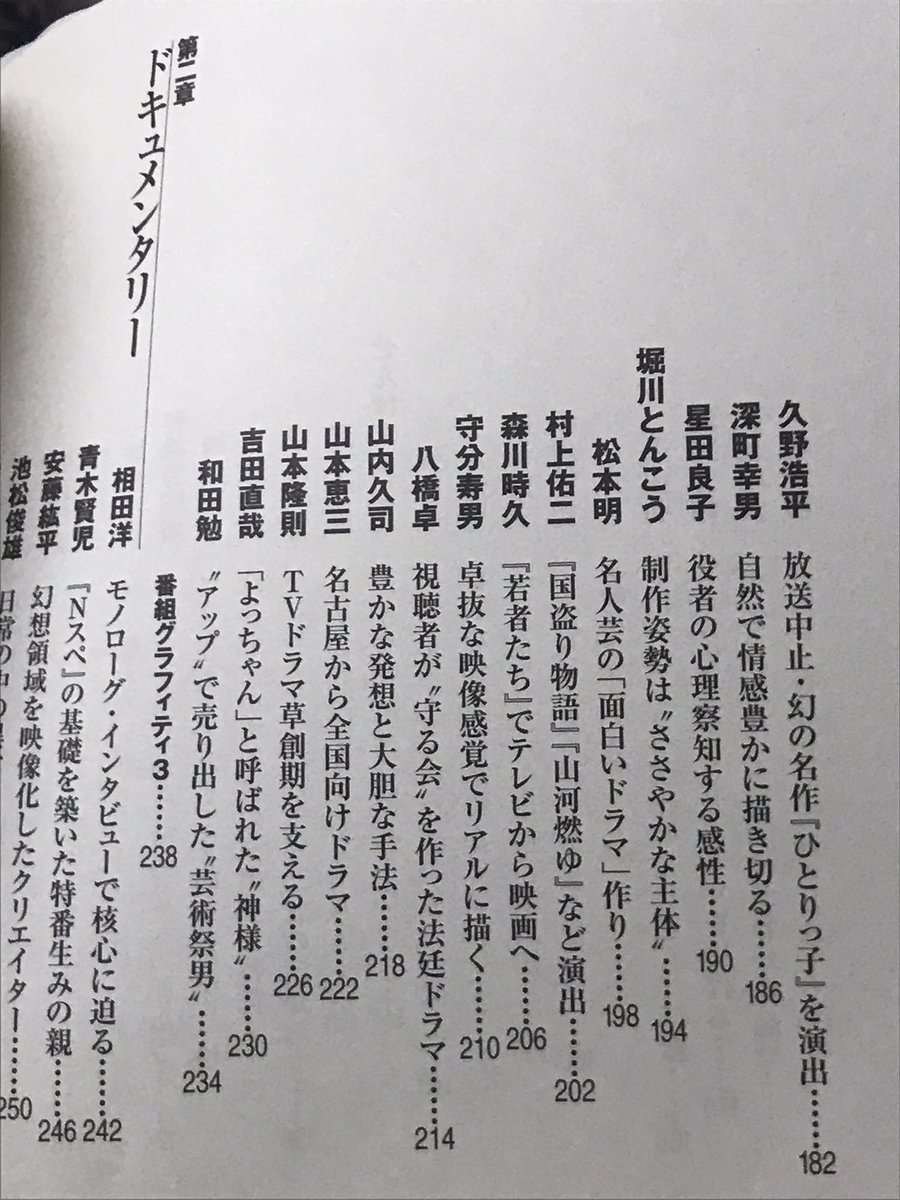 久野浩平 放送中止・幻の名作『ひとりっ子』を演出……182
深町幸男 自然で情感豊かに描き切る……186
星田良子 役者の心理察知する感性……190
堀川とんこう 制作姿勢は“ささやかな主体”……194
松本明 名人芸の「面白いドラマ」作り……198
村上佑二 『国盗り物語』『山河燃ゆ』など演出……202
森川時久 『若者たち』でテレビから映画へ……206
守分寿男 卓抜な映像感覚でリアルに描く……210
八橋卓 視聴者が“守る会”を作った法廷ドラマ……214
山内久司 豊かな発想と大胆な手法……218
山本恵三 名古屋から全国向けドラマ……222
山本隆則 TVドラマ草創期を支える……226
吉田直哉 「よっちゃん」と呼ばれた“神様”……230
和田勉 “アップ”で売り出した“芸術祭男”……234
番組グラフィティ3……238
第二章
ドキュメンタリー
相田洋 モノローグ・インタビューで核心に迫る……242
青木賢児 『Nスペ』の基礎を築いた特番生みの親……246
安藤紘平 幻想領域を映像化したクリエイター……250
池松俊雄 日常の中の